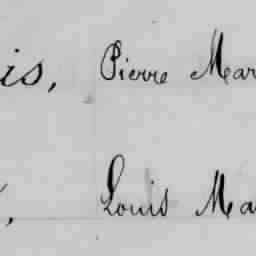 is, Pierre Mar
, Louis Ma